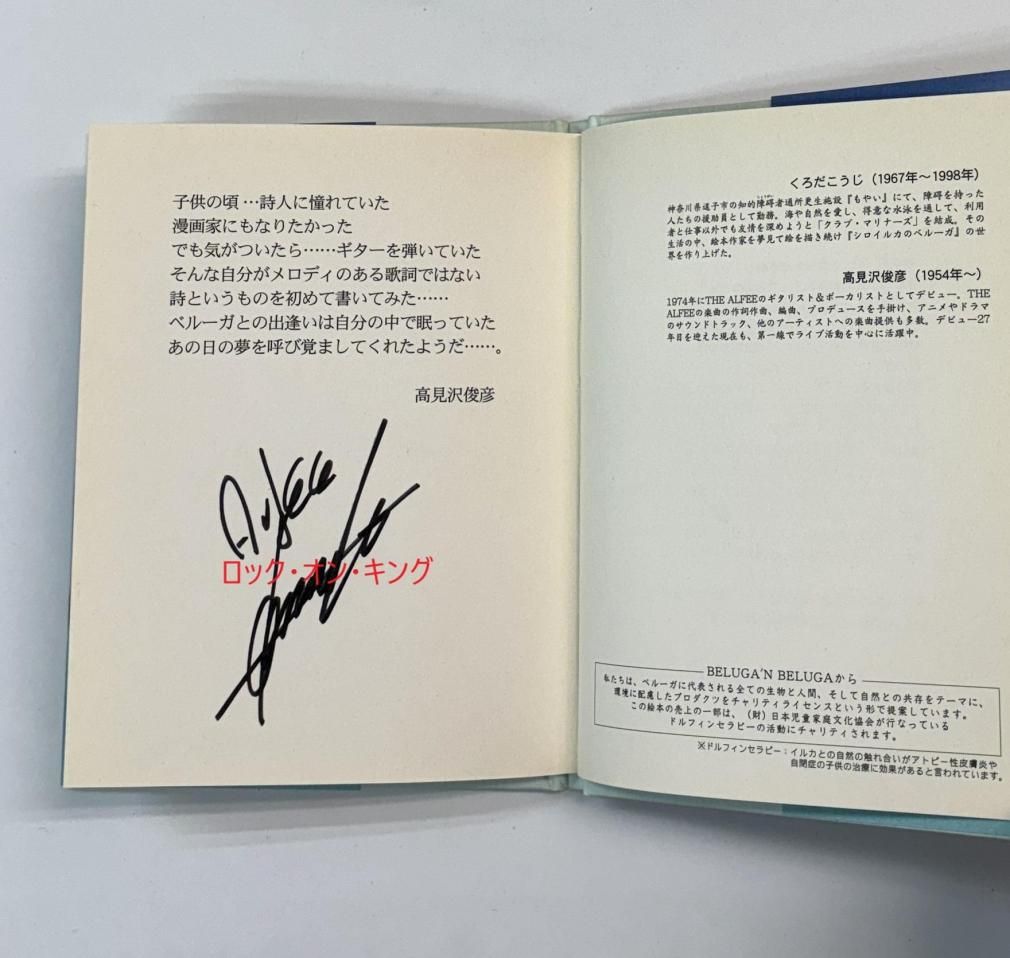 子供の頃…詩人に憧れていた
漫画家にもなりたかった
でも気がついたら……ギターを弾いていた
そんな自分がメロディのある歌詞ではない
詩というものを初めて書いてみた……
ベルーガとの出逢いは自分の中で眠っていた
あの日の夢を呼び覚ましてくれたようだ……。
高見沢俊彦
Alfee
ロック・オン・キング
くろだこうじ（1967年〜1998年）
神奈川県逗子市の知的障碍者通所更生施設『もやい』にて、障碍を持った
人たちの援助員として勤務。海や自然を愛し、得意な水泳を通して、利用
者と仕事以外でも友情を深めようと「クラブ・マリナーズ」を結成。その
生活の中、絵本作家を夢見て絵を描き続け『シロイルカのベルーガ』の世
界を作り上げた。
高見沢俊彦（1954年〜）
1974年にTHE ALFEEのギタリスト&ボーカリストとしてデビュー。THE
ALFEEの楽曲の作詞作曲、編曲、プロデュースを手掛け、アニメやドラマ
のサウンドトラック、他のアーティストへの楽曲提供も多数。デビュー27
年目を迎えた現在も、第一線でライブ活動を中心に活躍中。
BELUGA'N BELUGAから
私たちは、ベルーガに代表される全ての生物と人間、そして自然との共存をテーマに、
環境に配慮したプロダクツをチャリティライセンスという形で提案しています。
この絵本の売上の一部は、（財）日本児童家庭文化協会が行なっている
ドルフィンセラピーの活動にチャリティされます。
※ドルフィンセラピー：イルカとの自然の触れ合いがアトピー性皮膚炎や
自閉症の子供の治療に効果があると言われています。